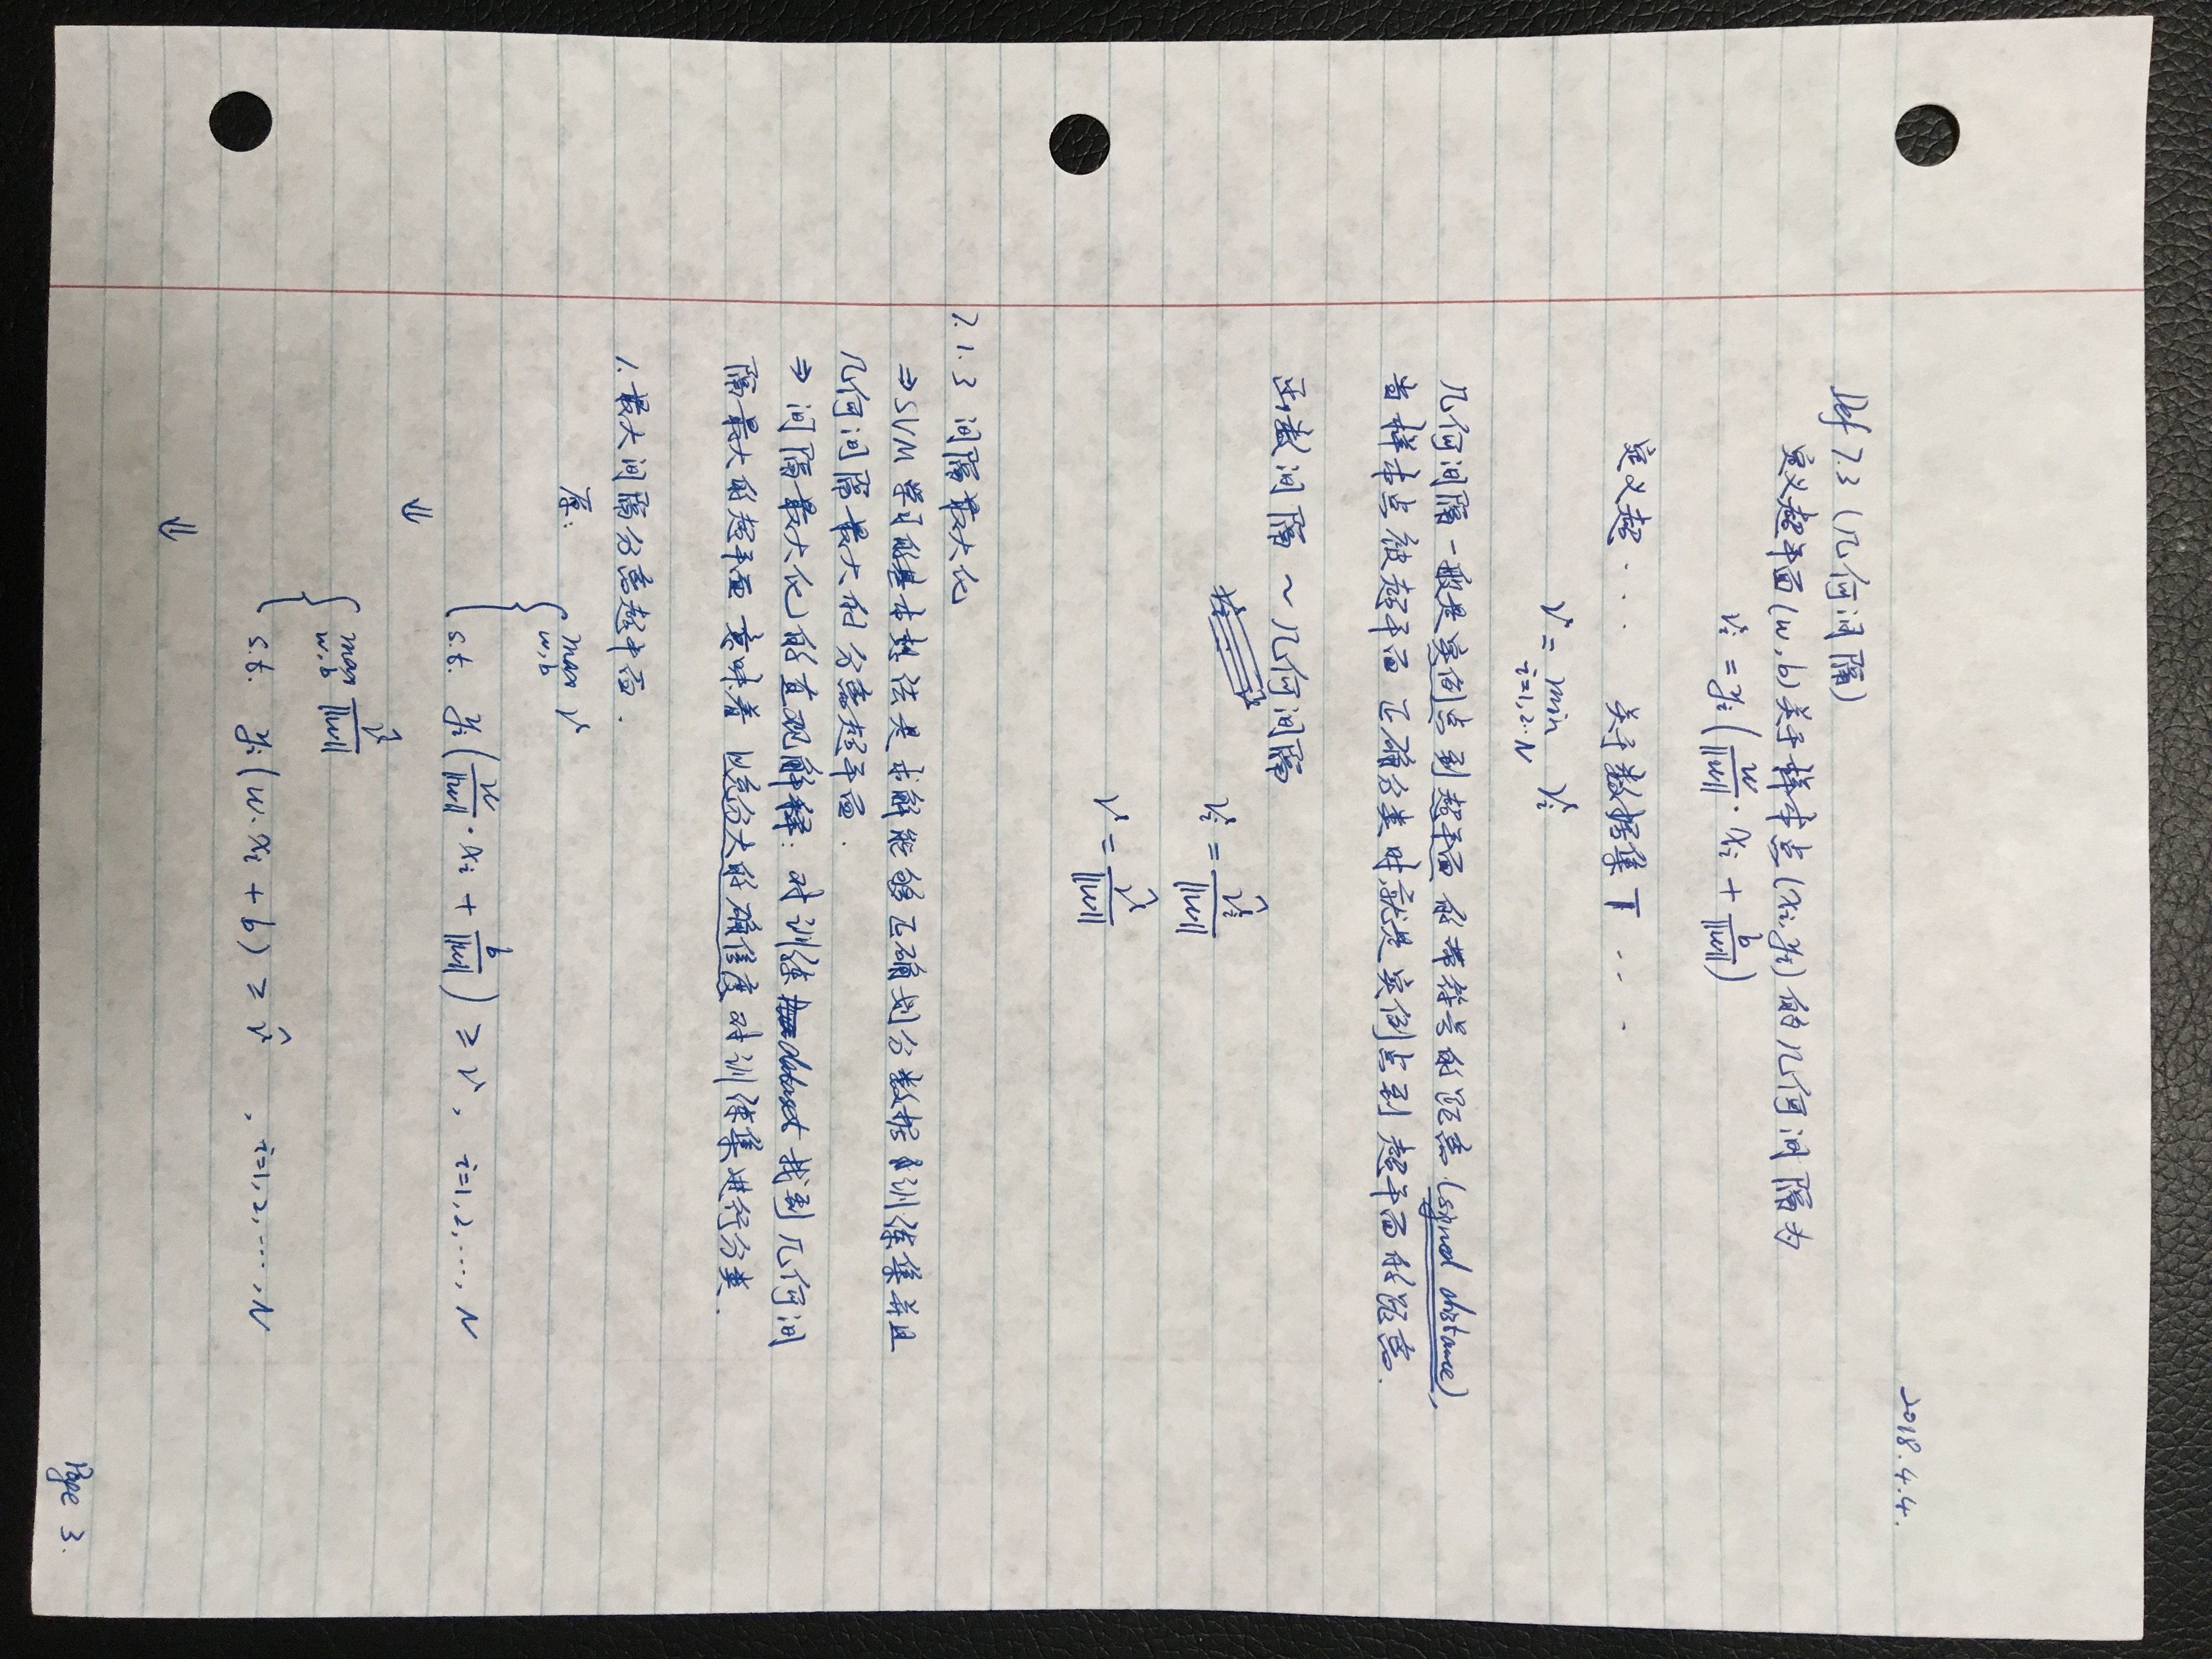 2018.4.4.
Def 7.3 (几何间隔)
定义超平面(w,b)关于样本点(xi,yi)的几何间隔为
γi = yi(w/‖w‖ · xi + b/‖w‖)
定义超 · · · 关于数据集T · · ·
γ = min γi
i=1,2..N
几何间隔一般是实例点到超平面的带符号的距离(signed distance),
当样本点被超平面正确分类时,就是实例点到超平面的距离.
函数间隔 ~ 几何间隔
γi = γ̂i/‖w‖
γ = γ̂/‖w‖
7.1.3 间隔最大化
⇒ SVM 学习的基本想法是求解能够正确划分数据训练集并且
几何间隔最大的分离超平面.
⇒ 间隔最大化的直观解释: 对训练dataset找到几何间
隔最大的超平面意味着以充分大的确信度对训练集进行分类.
1. 最大间隔分离超平面.
原: { max γ
w,b
s.t. yi(w/‖w‖ · xi + b/‖w‖) ≥ γ, i=1,2,...,N
⇓
{ max γ̂/‖w‖
w,b
s.t. yi(w·xi + b) ≥ γ̂ , i=1,2,....,N
⇓
Page 3.